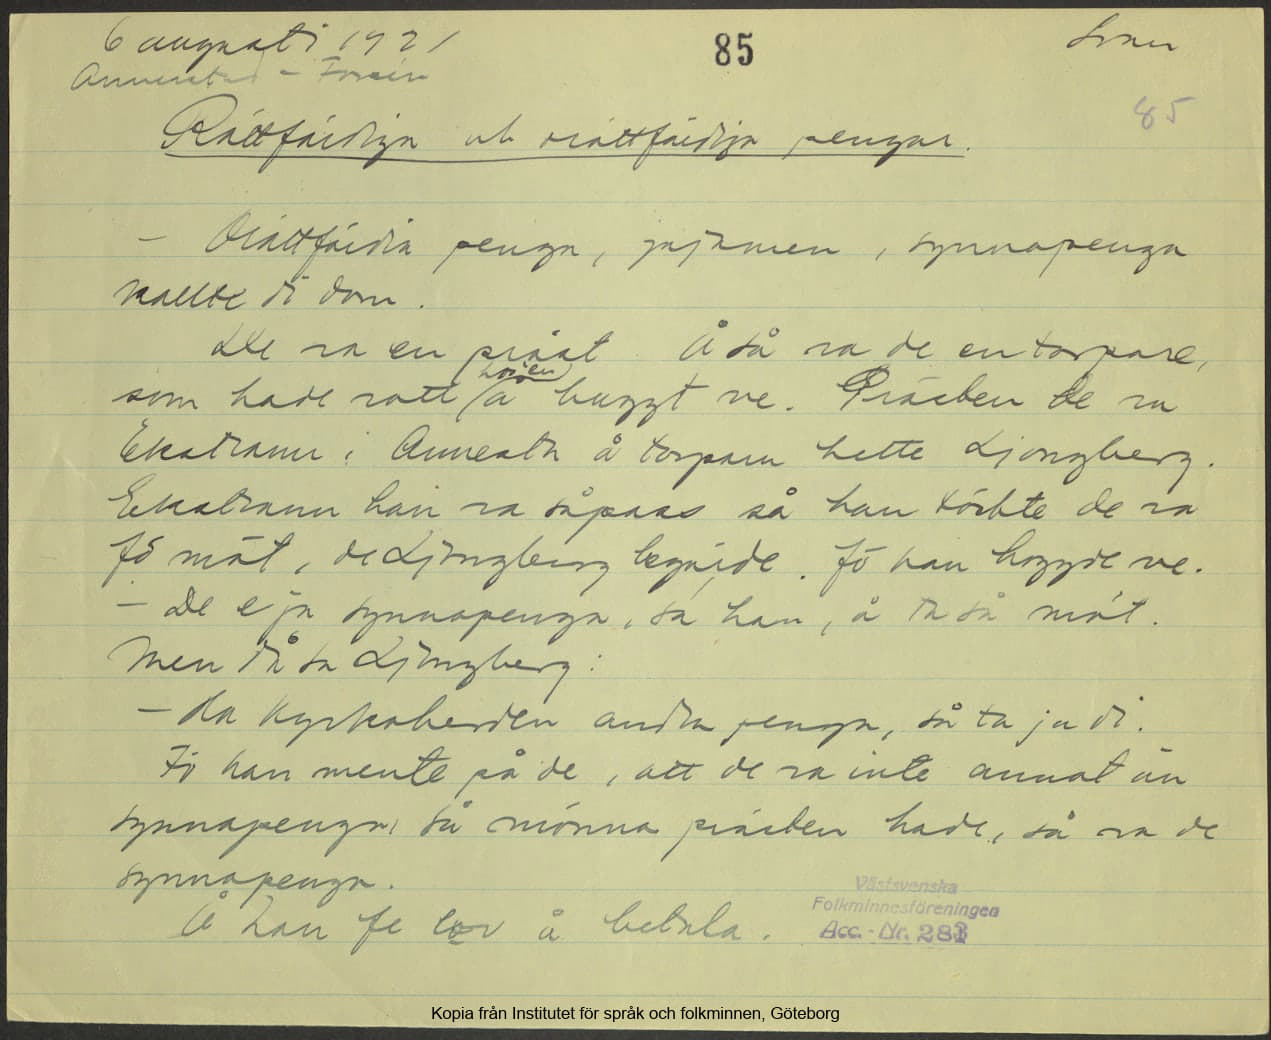 6 augusti 1921
85
Annerstad - Forsen
85
Rättfärdiga och orättfärdiga pengar.
- Orättfärdia penga, jajamen, synnapenga
kallte di dom.
De va en präst Å så va de en torpare,
som hade vatt å huggt ve. Prästen de va
Ekstrann i Annesta å torparn hette Ljongberg.
Ekstrann han va såpass så han töckte de va
fö möt, de Ljongberg begäde. fö han hoggde ve.
- De e ju synnapenga, sa han, å ta så möt.
Men då sa Ljongberg:
- Ha kyrkoherden andra penga, så ta ja di.
Fö han mente på de, att de va inte annat än
synnapenga, så mönna prästen hade, så va de
synnapenga.
Å han fe lov å betala.
Västsvenska
Folkminnesföreningen
Acc.-Nr. 283
Kopia från Institutet för språk och folkminnen, Göteborg